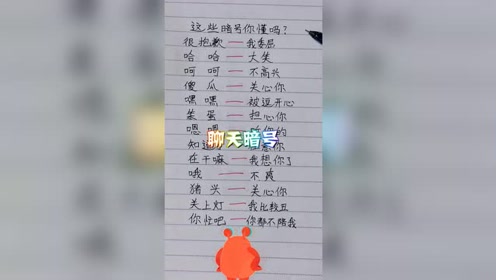 这些暗号你懂吗?
很抱歉——我委屈
哈哈——大笑
呵呵——不高兴
傻瓜——关心你
嘿嘿——被逗开心
笨蛋——担心你
嗯
聊天暗号
知道
在干嘛——我想你了
哦——不爽
猪头——关心你
关上灯——我比较丑
你忙吧——你都不陪我